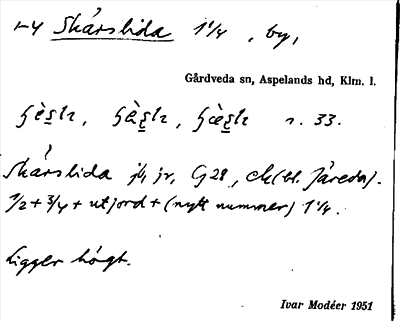 1-4 Skårslida 1 1/4, by,
Gårdveda sn, Aspelands hd, Klm. l.
s. 33.
Skårslida jb, jr, G 28, ck (bl. Järeda).
1/2 + 3/4 + utjord + (nytt nummer) 1 1/4.
Ligger högt.
Ivar Modéer 1951